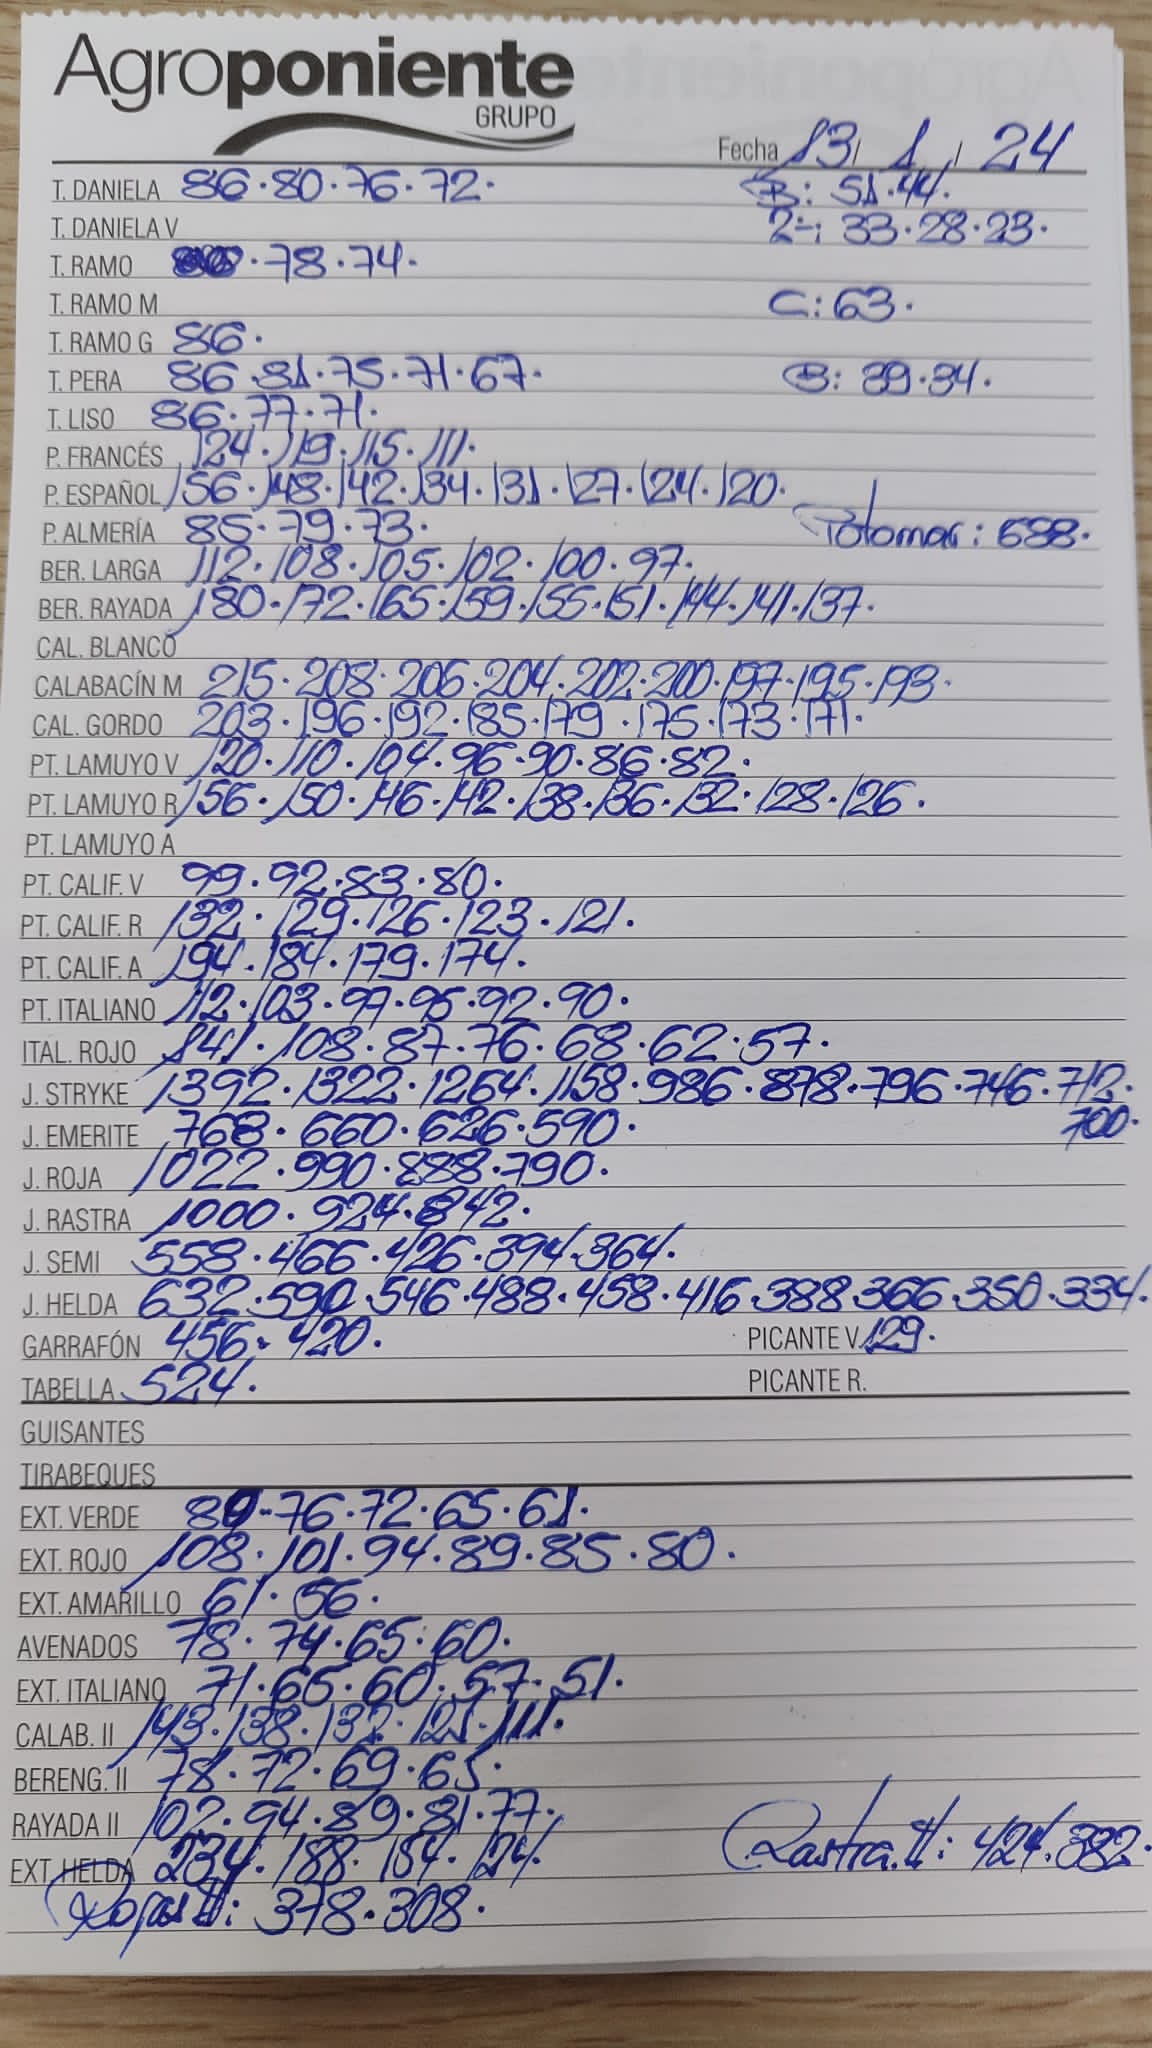 Agroponiente
GRUPO
Fecha 13/ 1 / 24
T. DANIELA 86·80·76·72· B: 51·44·
T. DANIELA V 2ª: 33·28·23·
T. RAMO ·78·74·
T. RAMO M C: 63·
T. RAMO G 86·
T. PERA 86·81·75·71·67· B: 39·34·
T. LISO 86·77·71·
P. FRANCÉS 124·119·115·111·
P. ESPAÑOL 156·148·142·134·131·127·124·120·
P. ALMERÍA 85·79·73· Potomar: 688·
BER. LARGA 112·108·105·102·100·97·
BER. RAYADA 180·172·165·159·155·151·144·141·137·
CAL. BLANCO
CALABACÍN M 215·208·206·204·202·200·197·195·193·
CAL. GORDO 203·196·192·185·179·175·173·171·
PT. LAMUYO V 120·110·104·96·90·86·82·
PT. LAMUYO R 156·150·146·142·138·136·132·128·126·
PT. LAMUYO A
PT. CALIF. V 99·92·83·80·
PT. CALIF. R 132·129·126·123·121·
PT. CALIF. A 194·184·179·174·
PT. ITALIANO 112·103·97·95·92·90·
ITAL. ROJO 141·108·87·76·68·62·57·
J. STRYKE 1392·1322·1264·1158·986·878·796·746·712·
700·
J. EMERITE 768·660·626·590·
J. ROJA 1022·990·888·790·
J. RASTRA 1000·924·842·
J. SEMI 558·466·426·394·364·
J. HELDA 632·590·546·488·458·416·388·366·350·334·
GARRAFÓN 456·420· PICANTE V. 129·
TABELLA 524· PICANTE R.
GUISANTES
TIRABEQUES
EXT. VERDE ·76·72·65·61·
EXT. ROJO 108·101·94·89·85·80·
EXT. AMARILLO 61·56·
AVENADOS 78·74·65·60·
EXT. ITALIANO 71·65·60·57·51·
CALAB. II 143·138·132·121·111·
BERENG. II 78·72·69·65·
RAYADA II 102·94·89·81·77·
EXT. HELDA 234·188·154·124· Rastra II: 424·382·
Rojas II: 378·308·